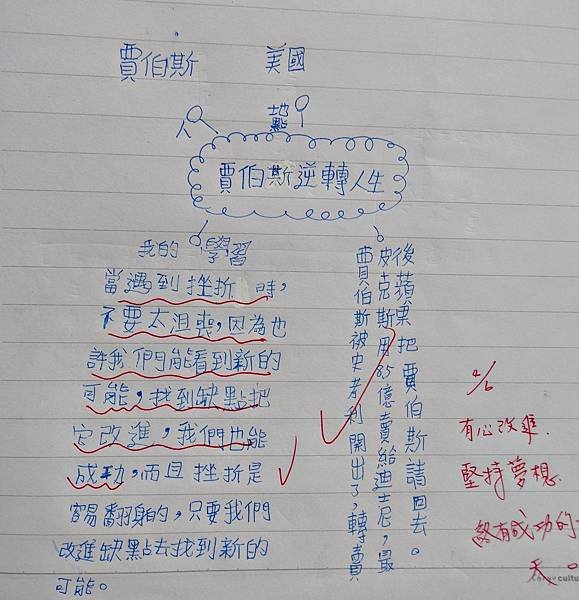 賈伯斯
美國
人
地點
賈伯斯逆轉人生
我的 學習
當遇到挫折時，
不要太沮喪，因為也
許我們能看到新的
可能，找到缺點把
它改進，我們也能
成功，而且挫折是
容易翻身的，只要我們
改進缺點去找到新的
可能。
賈伯斯被史考利開出了，轉賣
皮克斯用85億賣給迪士尼，最
後蘋果把賈伯斯請回去。
4/6
有心改進.
堅持夢想.
終有成功的
天。
culture